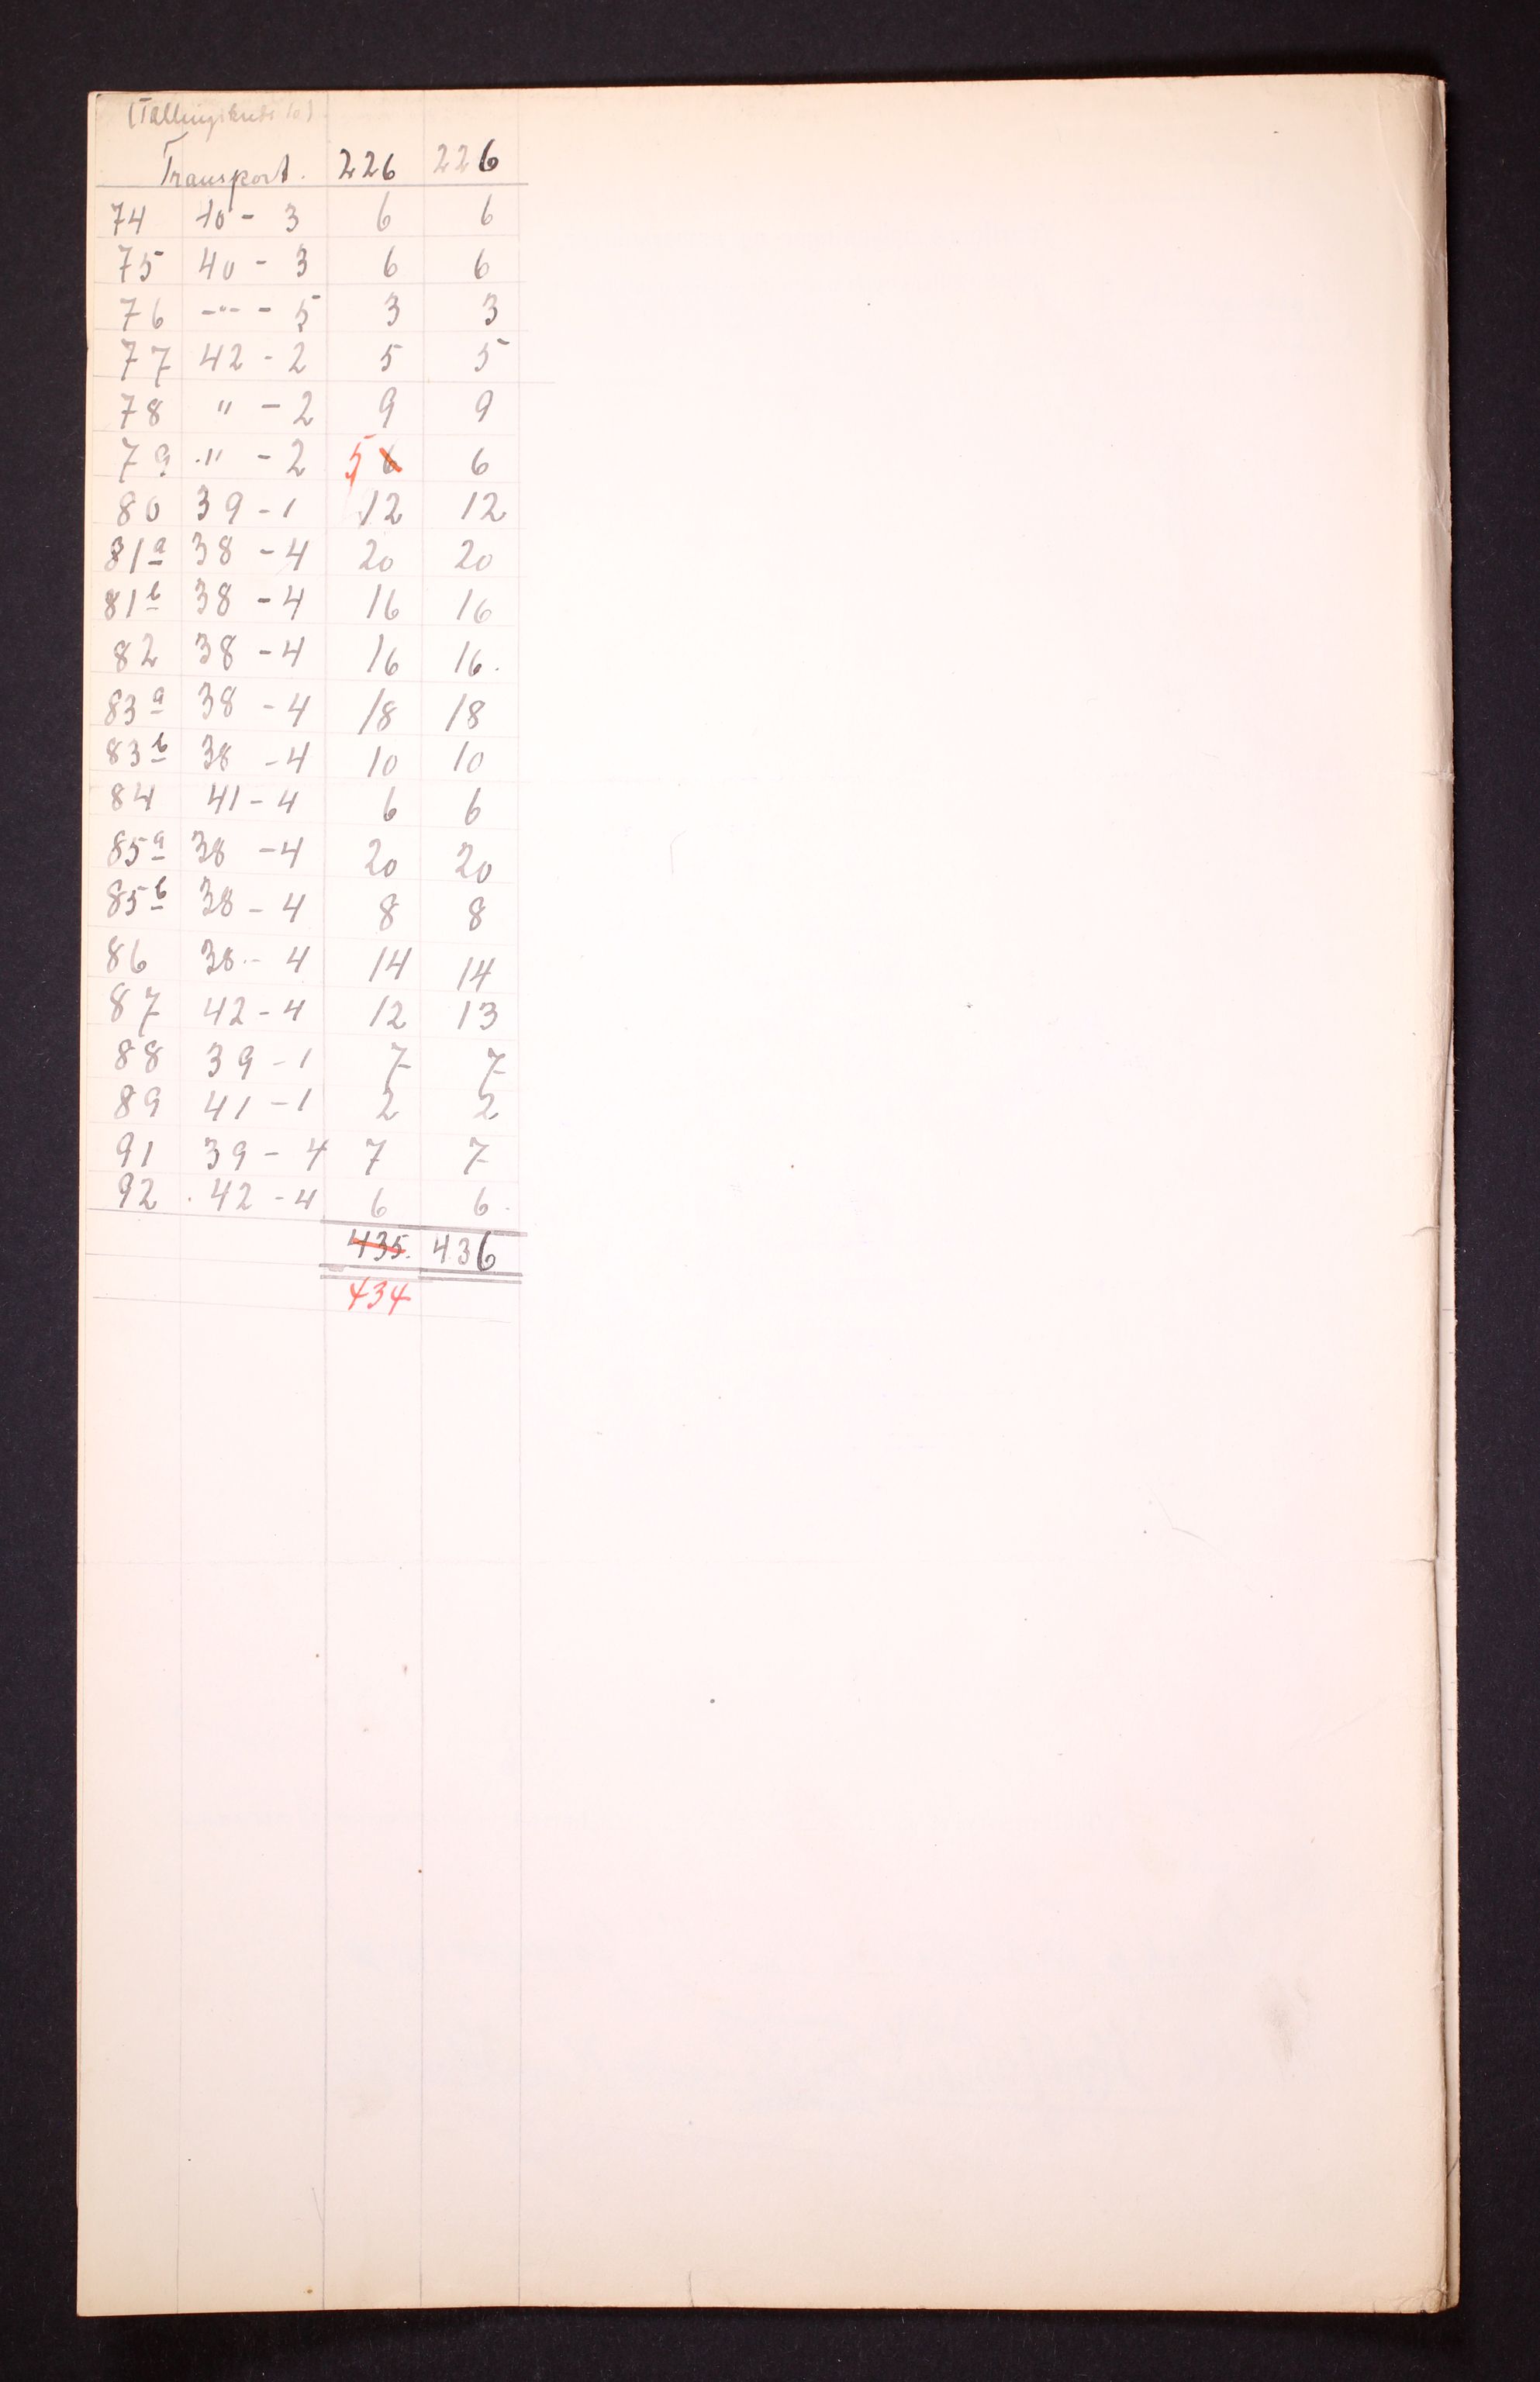 (Tællingskreds 10)
Transport. 226 226
74 40 - 3 6 6
75 40 - 3 6 6
76 -"- - 5 3 3
77 42 - 2 5 5
78 " - 2 9 9
79 " - 2 5 6 6
80 39 - 1 12 12
81a 38 - 4 20 20
81b 38 - 4 16 16
82 38 - 4 16 16.
83a 38 - 4 18 18
83b 38 - 4 10 10
84 41 - 4 6 6
85a 38 - 4 20 20
85b 38 - 4 8 8
86 38 - 4 14 14
87 42 - 4 12 13
88 39 - 1 7 7
89 41 - 1 2 2
91 39 - 4 7 7
92 . 42 - 4 6 6.
435. 436
434